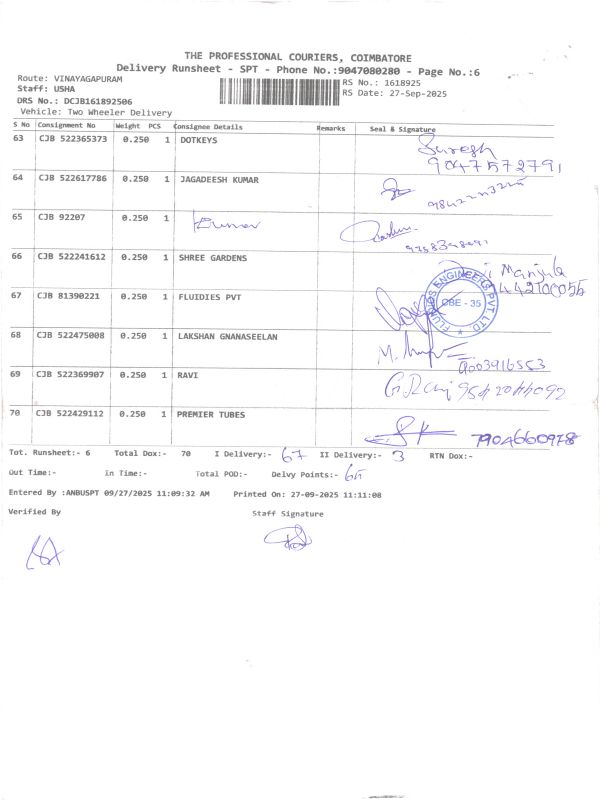 THE PROFESSIONAL COURIERS, COIMBATORE
Delivery Runsheet - SPT - Phone No.:9047080280 - Page No.:6
Route: VINAYAGAPURAM RS No.: 1618925
Staff: USHA RS Date: 27-Sep-2025
DRS No.: DCJB161892506
Vehicle: Two Wheeler Delivery
S No Consignment No Weight PCS Consignee Details Remarks Seal & Signature
63 CJB 522365373 0.250 1 DOTKEYS Suresh
9047572791
64 CJB 522617786 0.250 1 JAGADEESH KUMAR
65 CJB 92207 0.250 1 Kumar
66 CJB 522241612 0.250 1 SHREE GARDENS Manjula
9442100055
67 CJB 81390221 0.250 1 FLUIDIES PVT FLUIDIOS ENGINEERS PVT. LTD ★ CBE - 35
68 CJB 522475008 0.250 1 LAKSHAN GNANASEELAN
9003916553
69 CJB 522369907 0.250 1 RAVI G.Ravi 9542044092
70 CJB 522429112 0.250 1 PREMIER TUBES 7904660978
Tot. Runsheet:- 6 Total Dox:- 70 I Delivery:- 67 II Delivery:- 3 RTN Dox:-
Out Time:- In Time:- Total POD:- Delvy Points:-
Entered By :ANBUSPT 09/27/2025 11:09:32 AM Printed On: 27-09-2025 11:11:08
Verified By Staff Signature